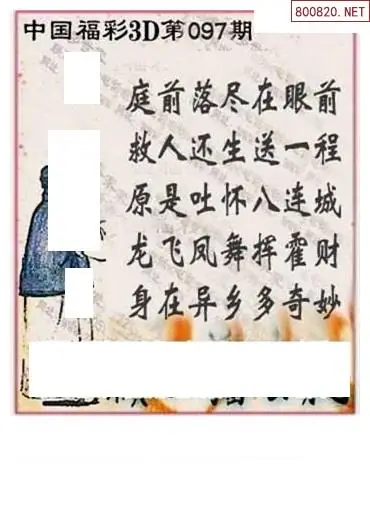 800820.NET
中国福彩3D第097期
庭前落尽在眼前
救人还生送一程
原是吐怀八连城
龙飞凤舞挥霍财
身在异乡多奇妙